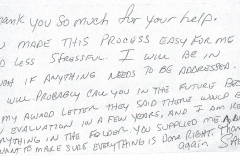 hank you so much for your help.
U MADE THIS PROCESS EASY FOR ME
D LESS STRESSFUL. I WILL BE IN
IF ANYTHING NEEDS TO BE ADDRESSED.
WILL PROBABLY CALL YOU IN THE FUTURE BEC
MY AWARD LETTER THEY SAID THERE WOULD B
EVALUATION IN A FEW YEARS, AND I AM
YTHING IN THE FOLDER YOU SUPPLIED ME
WANT TO MAKE SURE EVERYTHING IS DONE RIGHT. Than
again